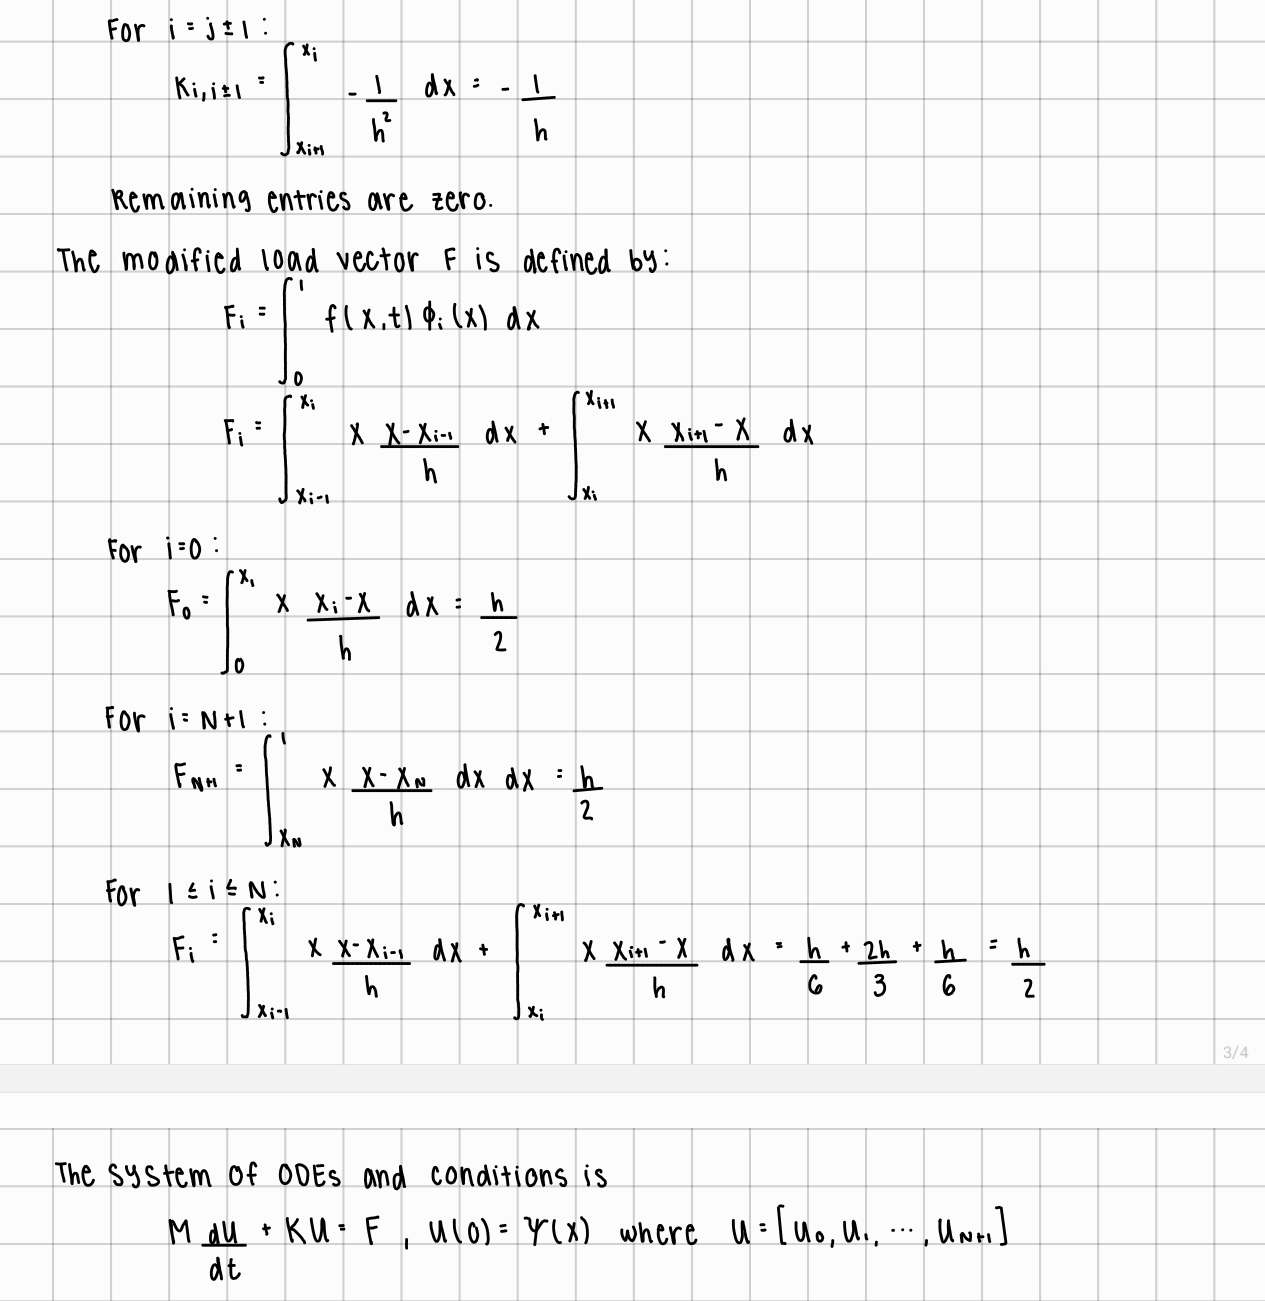 For i = j ± 1 :
K_{i,i±1} = ∫_{x_{i+1}}^{x_i} - 1/h² dx = - 1/h
Remaining entries are zero.
The modified load vector F is defined by:
F_i = ∫_0^1 f(x,t) ϕ_i(x) dx
F_i = ∫_{x_{i-1}}^{x_i} x (x - x_{i-1})/h dx + ∫_{x_i}^{x_{i+1}} x (x_{i+1} - x)/h dx
For i=0 :
F_0 = ∫_0^{x_1} x (x_i - x)/h dx = h/2
For i = N+1 :
F_{N+1} = ∫_{x_N}^1 x (x - x_N)/h dx dx = h/2
For 1 ≤ i ≤ N :
F_i = ∫_{x_{i-1}}^{x_i} x (x - x_{i-1})/h dx + ∫_{x_i}^{x_{i+1}} x (x_{i+1} - x)/h dx = h/6 + 2h/3 + h/6 = h/2
3/4
The system of ODEs and conditions is
M dU/dt + KU = F , U(0) = Ψ(x) where U = [u_0, u_1, ..., u_{N+1}]